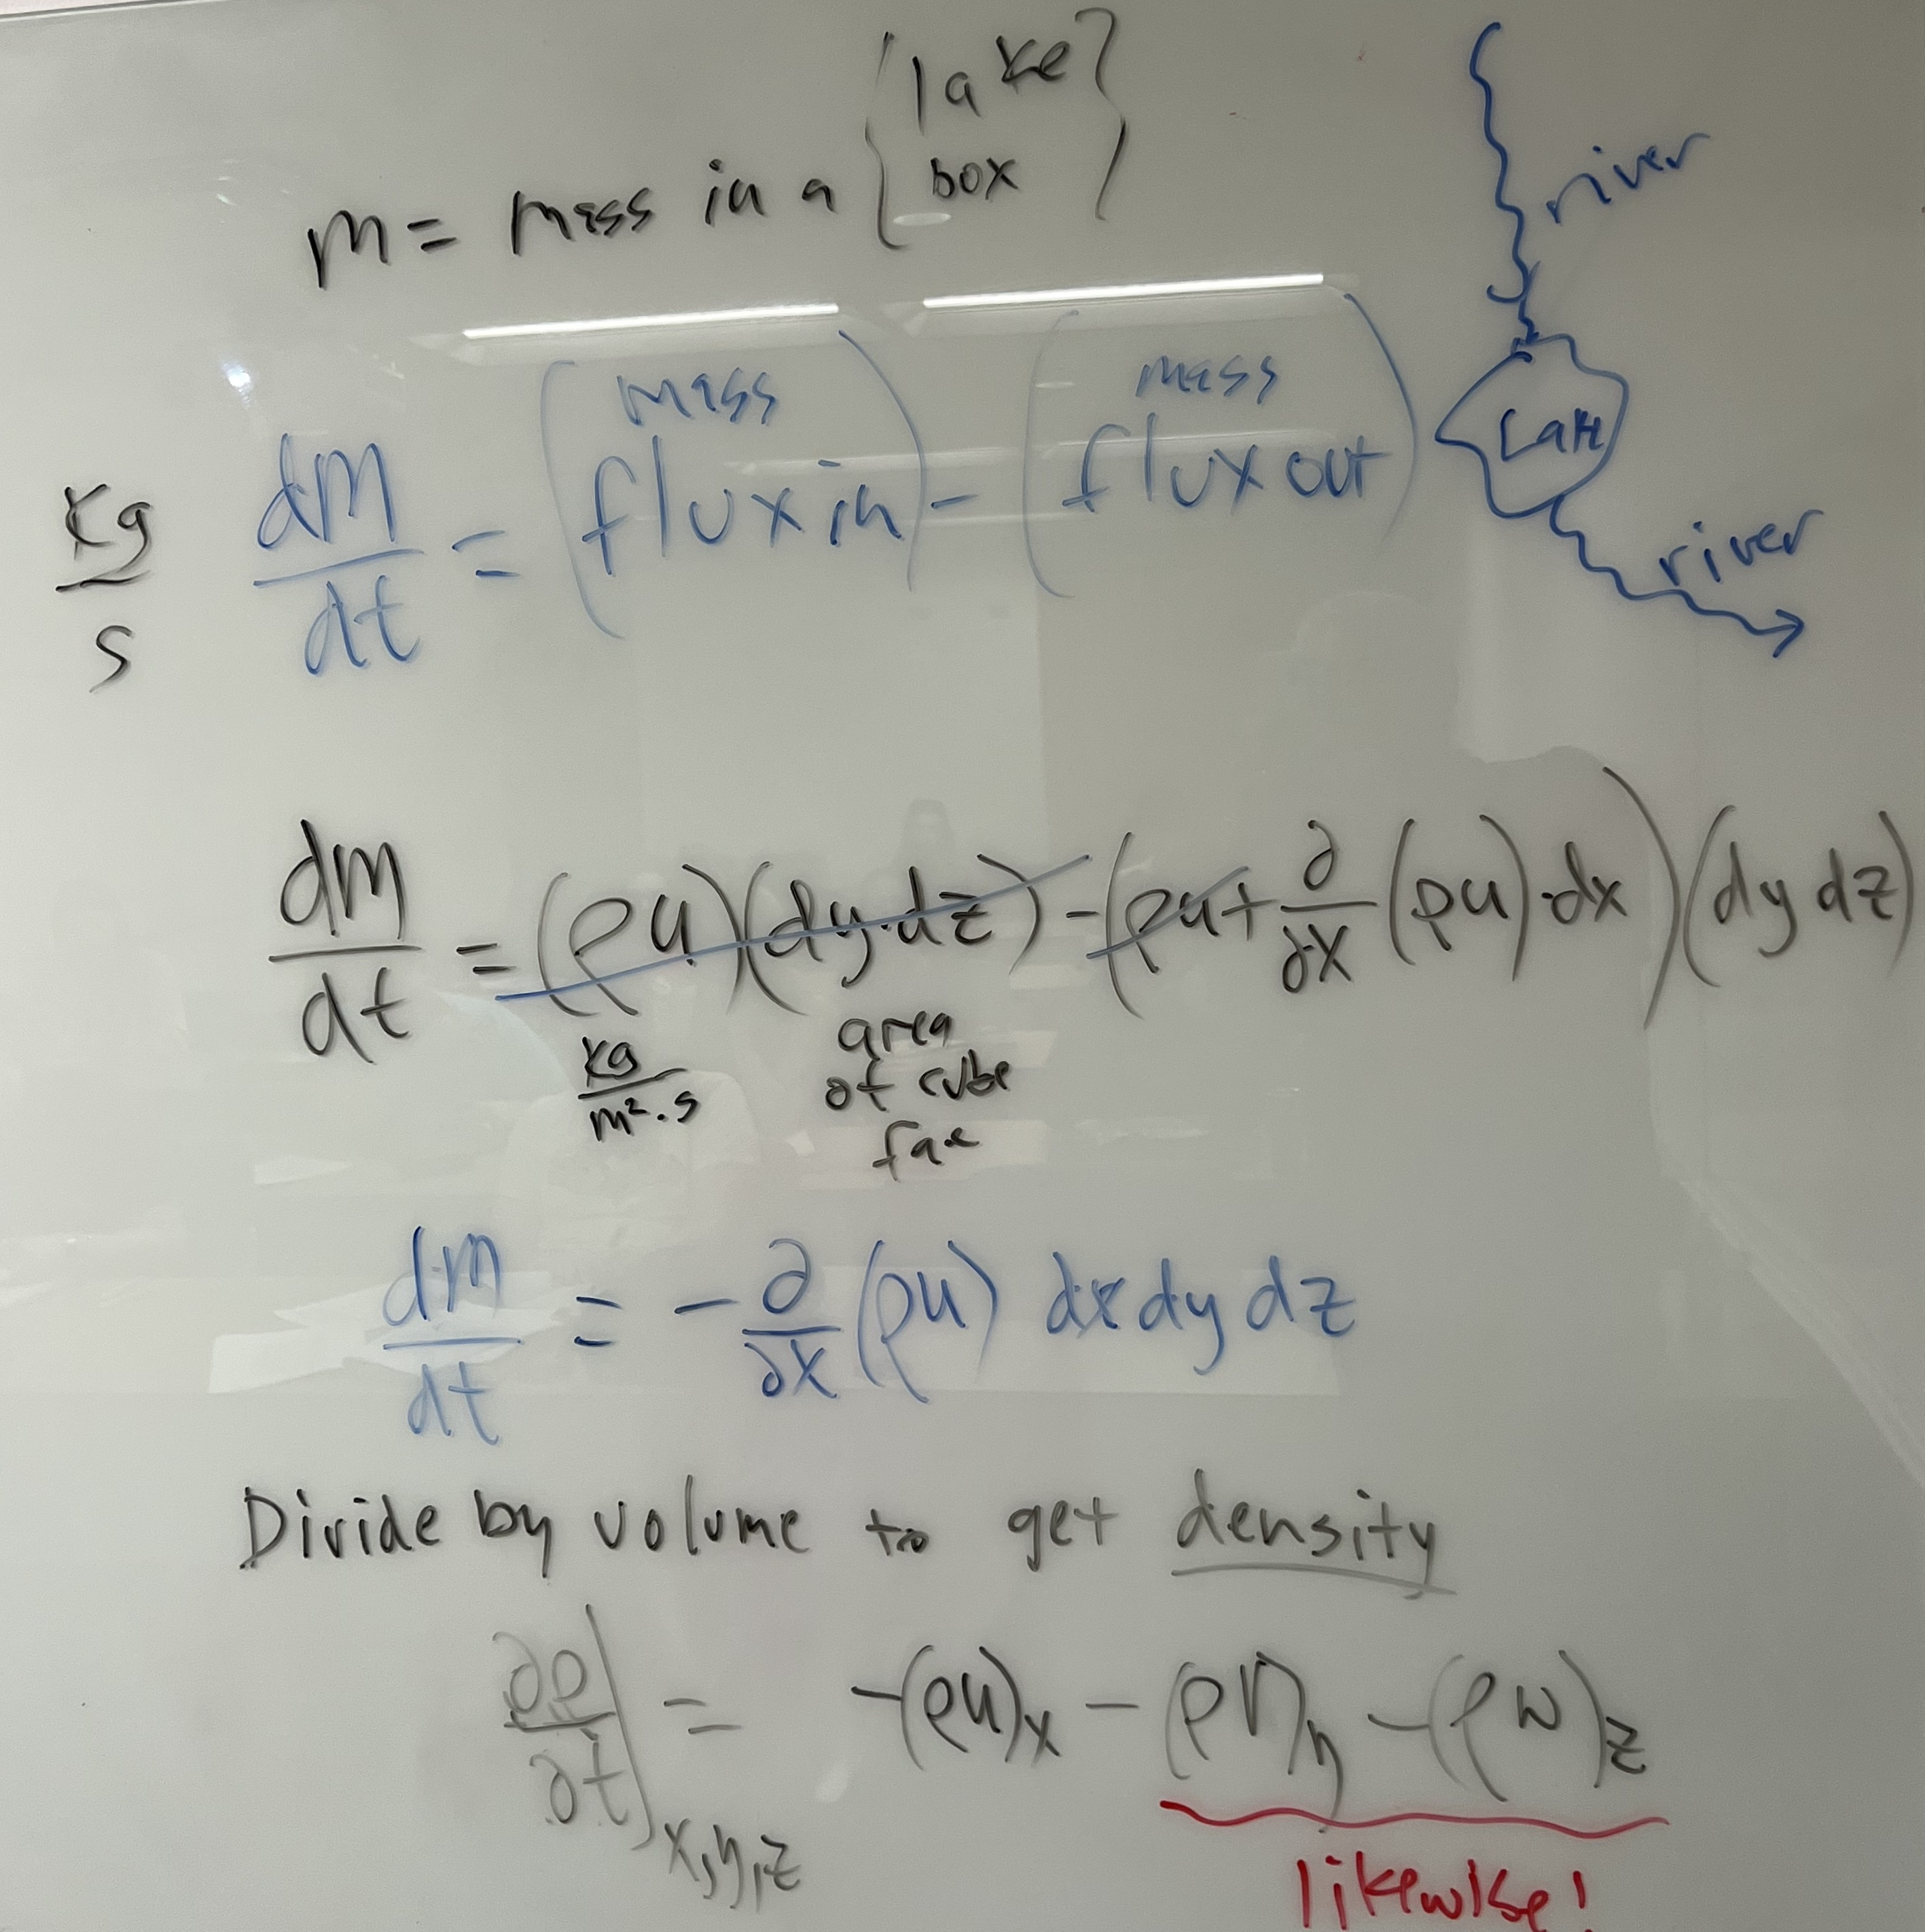 m = mass in a { lake
box }
river
kg/s dm/dt = (mass flux in) - (mass flux out)
Lake
river
dm/dt = (ρu)(dy·dz) - (ρu + ∂/∂x (ρu)·dx)(dy dz)
kg/m²·s
area
of cube
face
dm/dt = - ∂/∂x (ρu) dx dy dz
Divide by volume to get density
∂ρ/∂t|x,y,z = -(ρu)x - (ρv)y - (ρw)z
likewise!